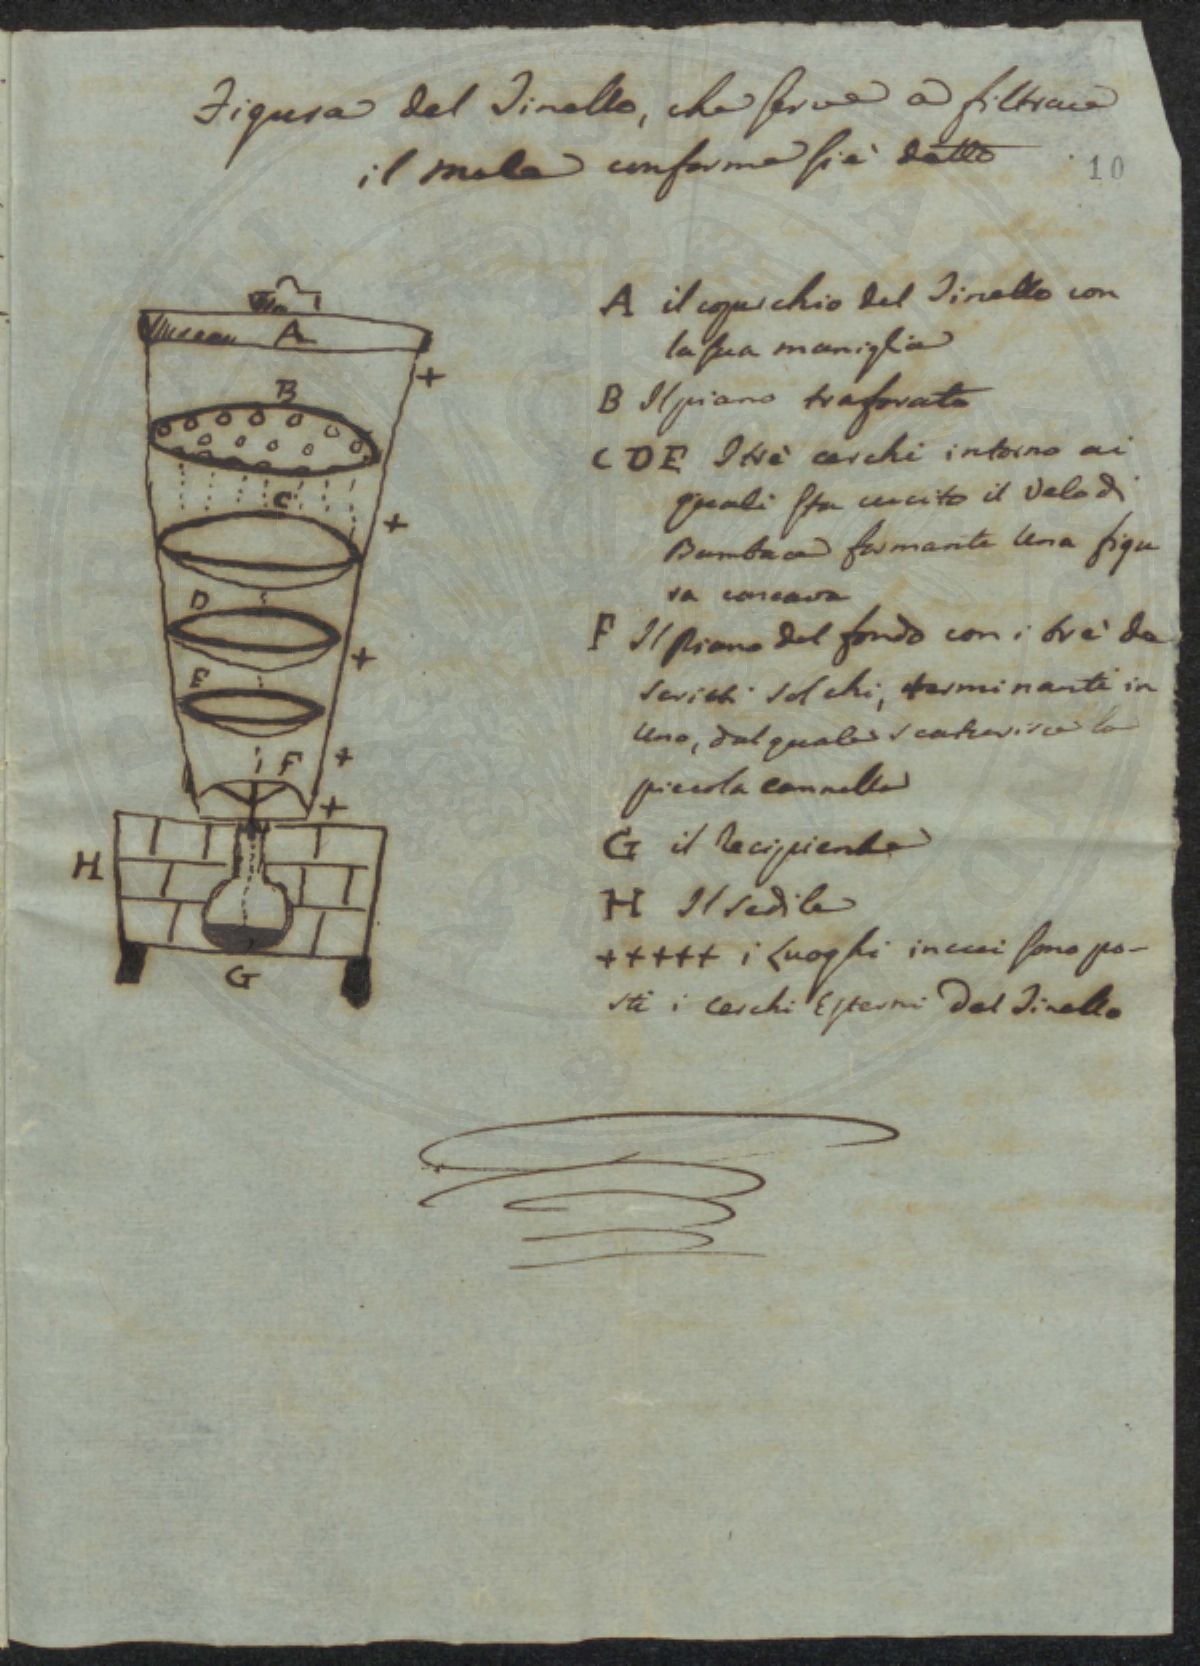 Figura del Tinello, che serve a filtrare
il mele conforme si è detto
10
A il coperchio del Tinello con
la sua maniglia
B Il piano traforato
C D E I trè cerchi intorno ai
quali sta cucito il velo di
Bambace formante una figu
ra concava
F Il Piano del fondo con i trè de
scritti solchi, terminanti in
uno, dal quale scaturisce la
piccola cannella
G il Recipiente
H Il sedile
+++++ i Luoghi in cui sono po-
sti i cerchi Esterni del Tinello
A
B
+
C
+
D
+
E
F
+
+
H
G